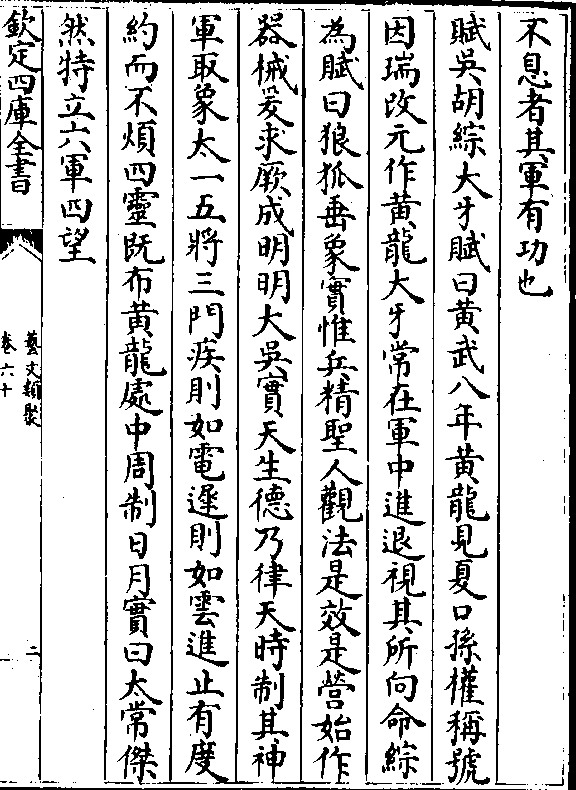 不息者其軍有功也
賦吳胡綜大牙賦曰黄武八年黄龍見夏口孫權稱號
因瑞改元作黄龍大牙常在軍中進退視其所向命綜
為賦曰狼狐垂象實惟兵精聖人觀法是效是營始作
器械爰求厥成明明大吳實天生德乃律天時制其神
軍取象太一五將三門疾則如電遲則如雲進止有度
約而不煩四靈既布黄龍處中周制日月實曰太常傑
然特立六軍四望
欽定四庫全書
藝文類聚
卷六十
二